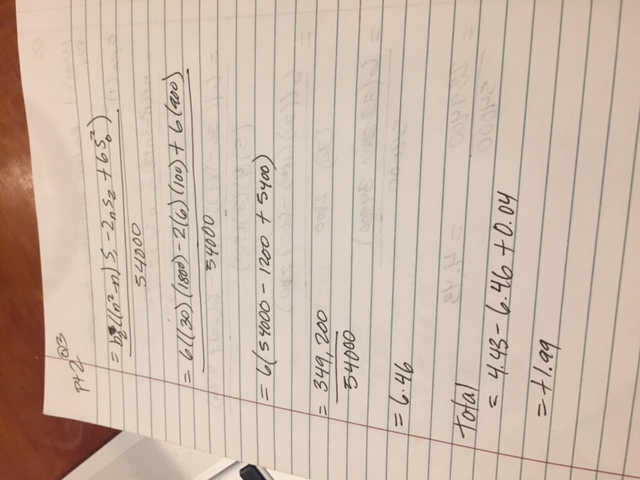 pt 2 Q3
= b2((n²-n) S₁ -2nS₂ + 6S₀²)
54000
= 6((30)(1800) - 2(6)(100) + 6(900)
54000
= 6(54000 - 1200 + 5400)
= 349,200
54000
= 6.46
Total
= 4.43 - 6.46 + 0.04
= +1.99